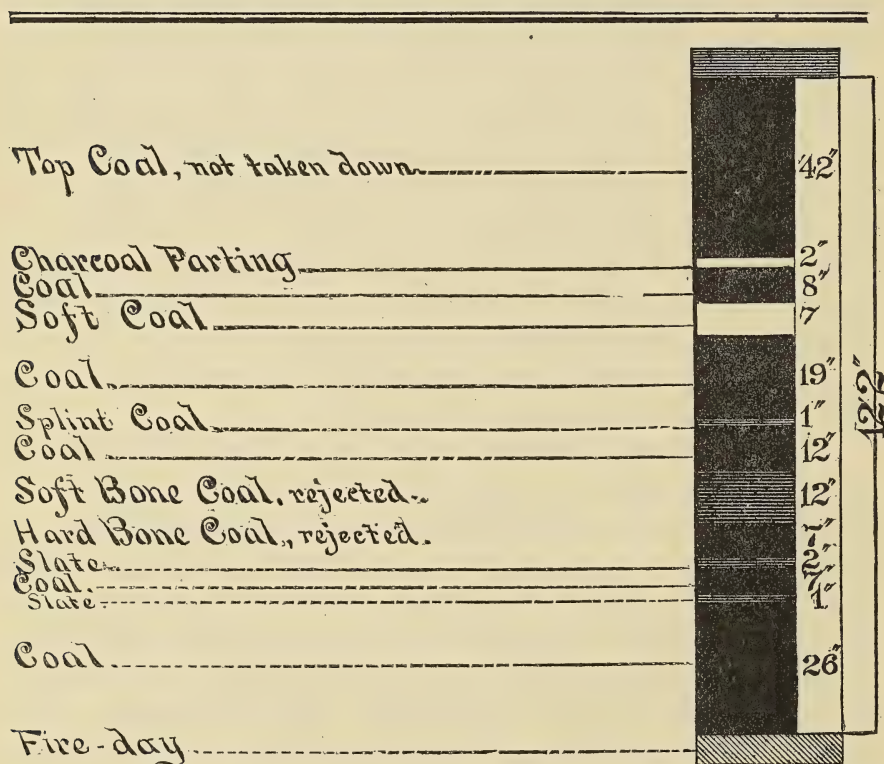 Top Coal, not taken down 42"
Charcoal Parting 2"
Coal 8"
Soft Coal 7
Coal 19"
Splint Coal 1"
Coal 12"
Soft Bone Coal, rejected. 12"
Hard Bone Coal, rejected.
Slate 2"
Coal.
Slate 1"
Coal 26"
Fire-clay
12'2"